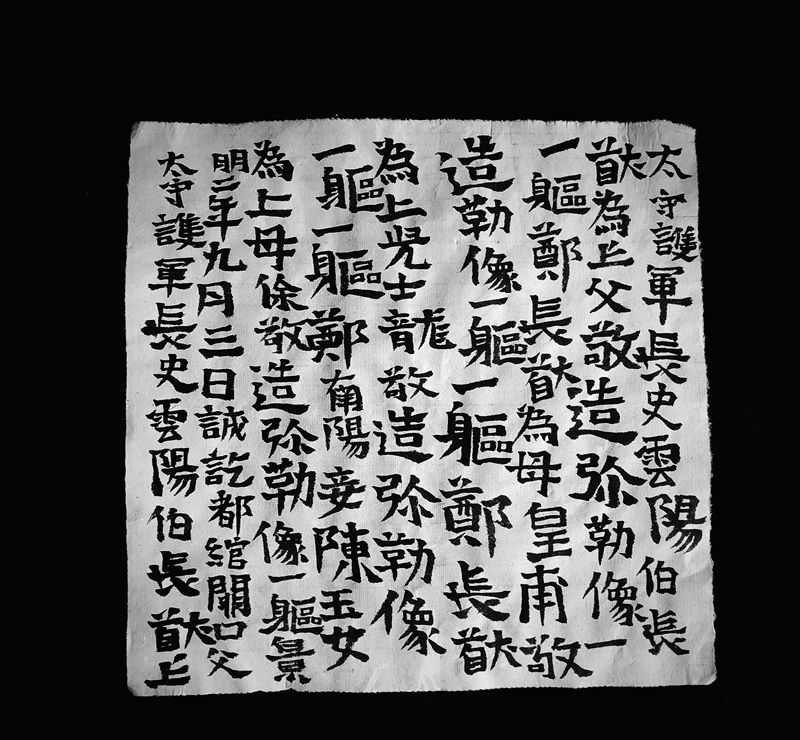 太守護軍長史雲陽伯長
猷為亡父敬造弥勒像一
一軀鄭長猷為母皇甫敬
造勒像一軀一軀鄭長猷
為亡児士龍敬造弥勒像
一軀一軀鄭南陽妾陳玉女
為亡母徐敬造弥勒像一軀景
明二年九月三日誠訖都綰關口父
太守護軍長史雲陽伯長猷亡